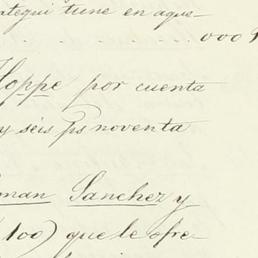 ategui tiene en aque-
. . . . . . . . . . 000 P
Hoppe por cuenta
y séis ps noventa
man Sanchez y
(100) que le ofre-